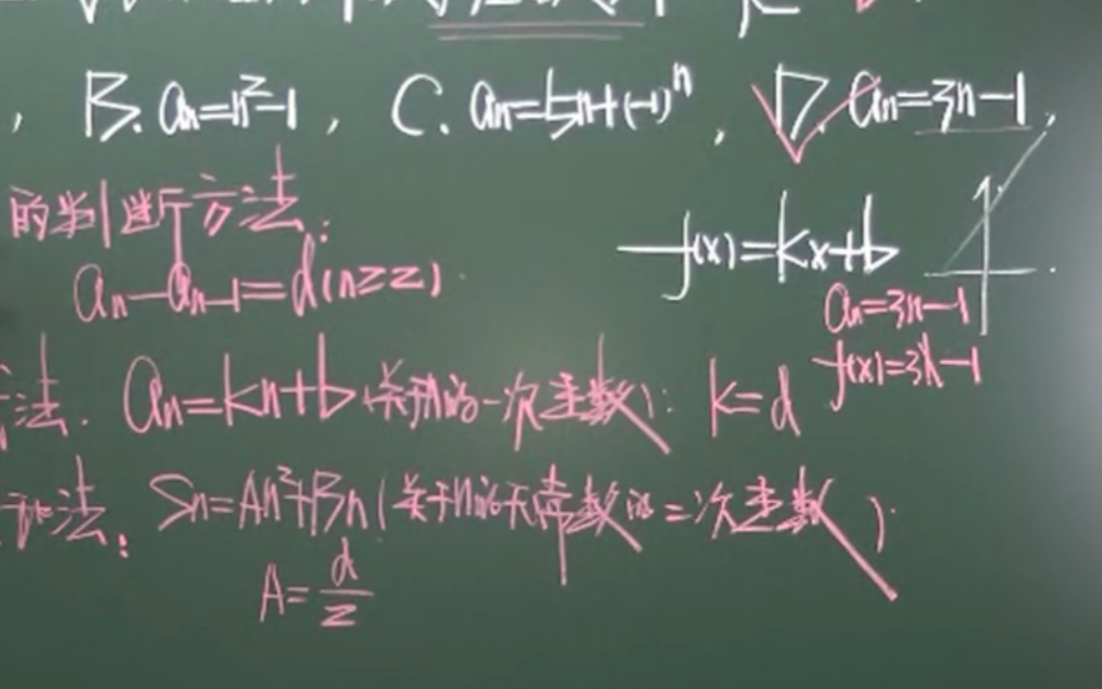 , B. an=n²-1 , C. an=5n+(-1)ⁿ , D. an=3n-1 .
的判断方法:
f(x)=kx+b
an-an-1=d(n≥2)
an=3n-1
f(x)=3x-1
法. an=kn+b(关于n的一次函数): k=d
法: Sn=An²+Bn(关于n的无常数的二次函数)
A=d/2